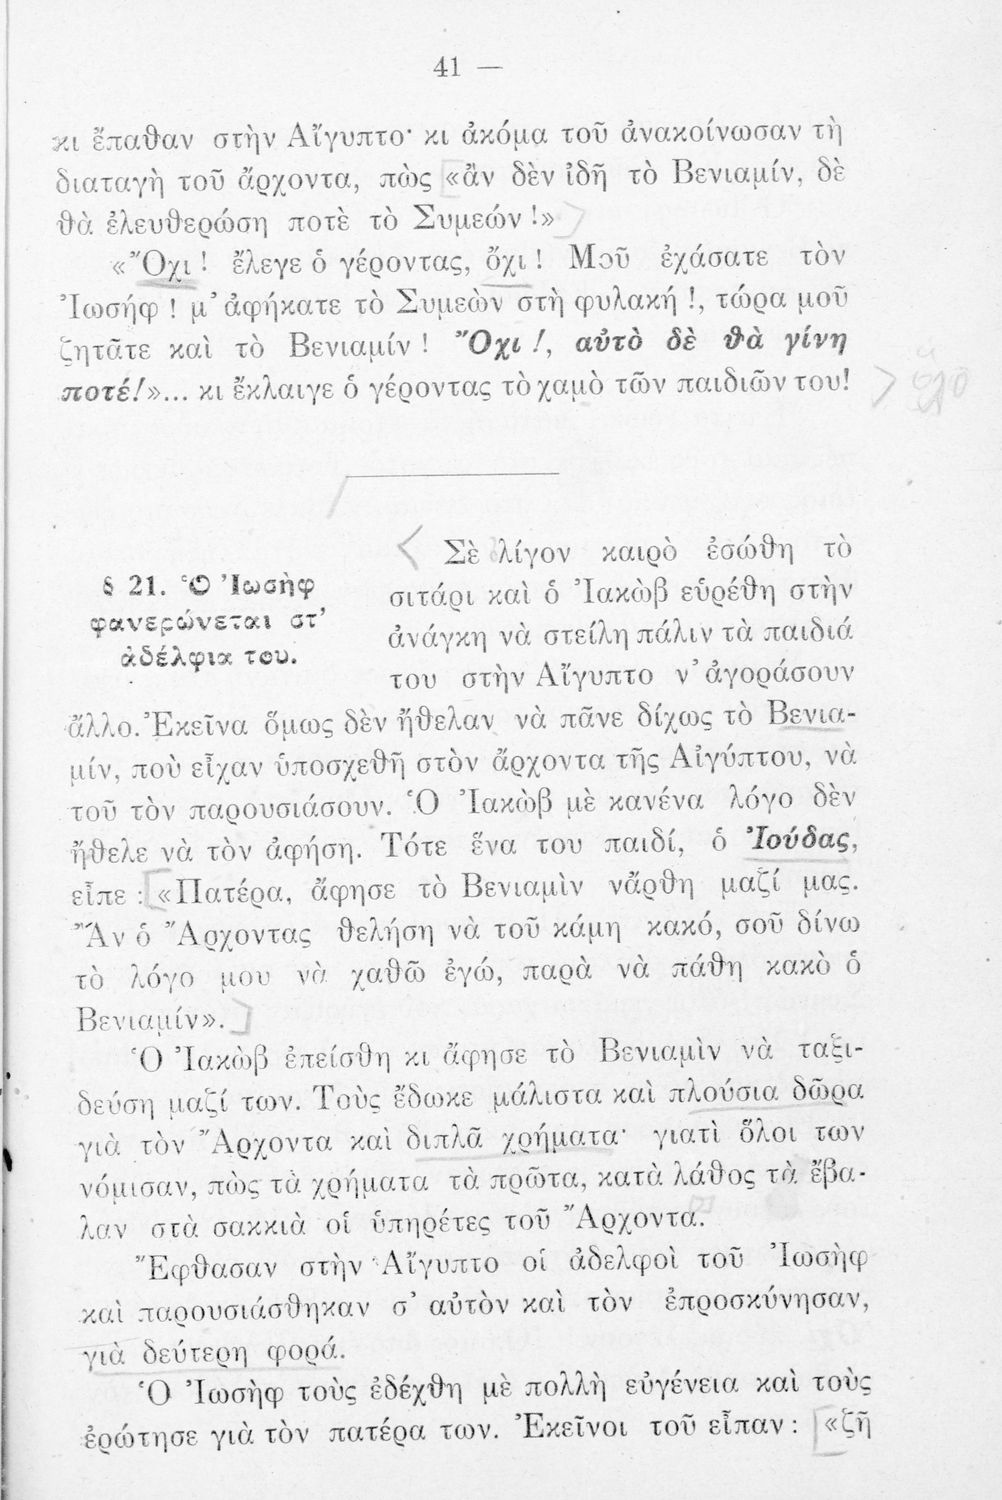 41 —
κι ἔπαθαν στὴν Αἴγυπτο· κι ἀκόμα τοῦ ἀνακοίνωσαν τὴ
διαταγὴ τοῦ ἄρχοντα, πὼς «ἂν δὲν ἰδῆ τὸ Βενιαμίν, δὲ
θὰ ἐλευθερώση ποτὲ τὸ Συμεών!»
«Ὄχι! ἔλεγε ὁ γέροντας, ὄχι! Μοῦ ἐχάσατε τὸν
Ἰωσήφ! μ' ἀφήκατε τὸ Συμεὼν στὴ φυλακή!, τώρα μοῦ
ζητᾶτε καὶ τὸ Βενιαμίν! Ὄχι!, αὐτὸ δὲ θὰ γίνη
ποτέ!»... κι ἔκλαιγε ὁ γέροντας τὸ χαμὸ τῶν παιδιῶν του!
§ 21. Ὁ Ἰωσὴφ
φανερώνεται στ'
ἀδέλφια του.
Σὲ λίγον καιρὸ ἐσώθη τὸ
σιτάρι καὶ ὁ Ἰακὼβ εὑρέθη στὴν
ἀνάγκη νὰ στείλη πάλιν τὰ παιδιά
του στὴν Αἴγυπτο ν' ἀγοράσουν
ἄλλο. Ἐκεῖνα ὅμως δὲν ἤθελαν νὰ πᾶνε δίχως τὸ Βενια-
μίν, ποὺ εἶχαν ὑποσχεθῆ στὸν ἄρχοντα τῆς Αἰγύπτου, νὰ
τοῦ τὸν παρουσιάσουν. Ὁ Ἰακὼβ μὲ κανένα λόγο δὲν
ἤθελε νὰ τὸν ἀφήση. Τότε ἕνα του παιδί, ὁ Ἰούδας,
εἶπε: «Πατέρα, ἄφησε τὸ Βενιαμὶν νἄρθη μαζί μας.
Ἂν ὁ Ἄρχοντας θελήση νὰ τοῦ κάμη κακό, σοῦ δίνω
τὸ λόγο μου νὰ χαθῶ ἐγώ, παρὰ νὰ πάθη κακὸ ὁ
Βενιαμίν».
Ὁ Ἰακὼβ ἐπείσθη κι ἄφησε τὸ Βενιαμὶν νὰ ταξι-
δεύση μαζί των. Τοὺς ἔδωκε μάλιστα καὶ πλούσια δῶρα
γιὰ τὸν Ἄρχοντα καὶ διπλᾶ χρήματα· γιατὶ ὅλοι των
νόμισαν, πὼς τὰ χρήματα τὰ πρῶτα, κατὰ λάθος τὰ ἔβα-
λαν στὰ σακκιὰ οἱ ὑπηρέτες τοῦ Ἄρχοντα.
Ἔφθασαν στὴν Αἴγυπτο οἱ ἀδελφοὶ τοῦ Ἰωσὴφ
καὶ παρουσιάσθηκαν σ' αὐτὸν καὶ τὸν ἐπροσκύνησαν,
γιὰ δεύτερη φορά.
Ὁ Ἰωσὴφ τοὺς ἐδέχθη μὲ πολλὴ εὐγένεια καὶ τοὺς
ἐρώτησε γιὰ τὸν πατέρα των. Ἐκεῖνοι τοῦ εἶπαν: «ζῆ